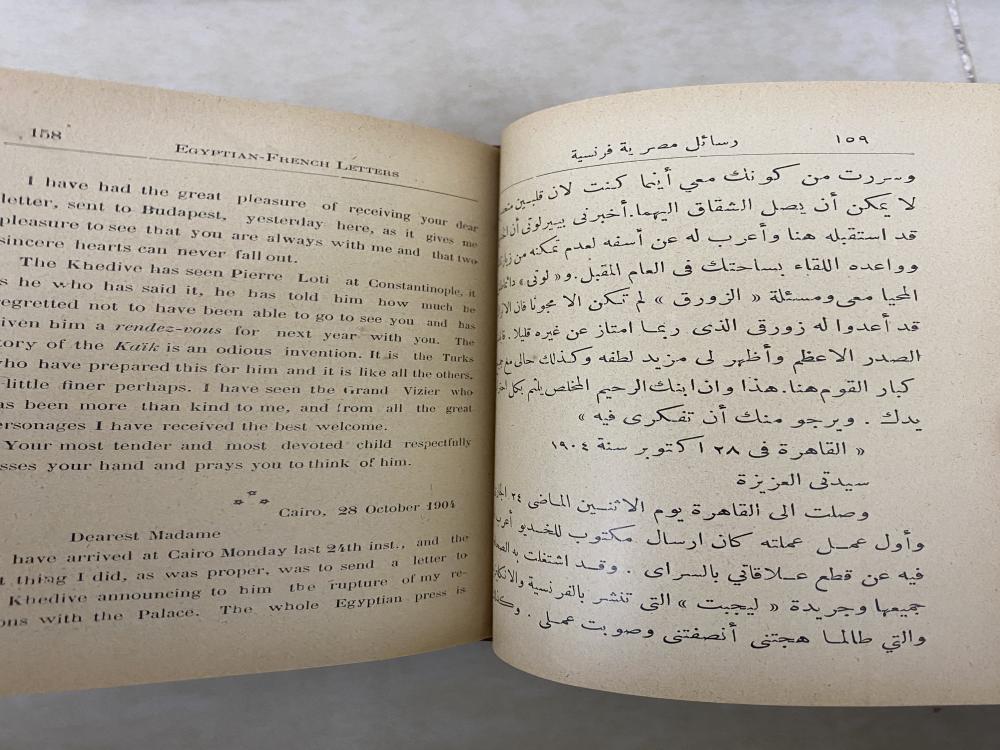 158
EGYPTIAN-FRENCH LETTERS
I have had the great pleasure of receiving your dear
letter, sent to Budapest, yesterday here, as it gives me
pleasure to see that you are always with me and that two
sincere hearts can never fall out.
The Khedive has seen Pierre Loti at Constantinople, it
is he who has said it, he has told him how much he
regretted not to have been able to go to see you and has
given him a rendez-vous for next year with you. The
story of the Kaïk is an odious invention. It is the Turks
who have prepared this for him and it is like all the others,
little finer perhaps. I have seen the Grand Vizier who
has been more than kind to me, and from all the great
personages I have received the best welcome.
Your most tender and most devoted child respectfully
kisses your hand and prays you to think of him.
***
Cairo, 28 October 1904
Dearest Madame
have arrived at Cairo Monday last 24th inst., and the
thing I did, as was proper, was to send a letter to
Khedive announcing to him the rupture of my re-
ons with the Palace. The whole Egyptian press is
رسائل مصرية فرنسية ١٥٩
وسررت من كونك معي أينما كنت لان قلبين
لا يمكن أن يصل الشقاق اليهما. أخبرنى بييرلوتى أن
قد استقبله هنا وأعرب له عن أسفه لعدم تمكنه من
وواعده اللقاء بساحتك فى العام المقبل. و« لوتى »
المحيا معى ومسئلة « الزورق » لم تكن الا مجونا فان
قد أعدوا له زورقي الذى ربما امتاز عن غيره قليلا.
الصدر الاعظم وأظهر لى مزيد لطفه وكذلك حالى مع
كبار القوم هنا. هذا وان ابنك الرحيم المخلص يلثم بكل
يدك . ويرجو منك أن تفكرى فيه »
« القاهرة فى ٢٨ اكتوبر سنة ١٩٠٤
سيدتى العزيزة
وصلت الى القاهرة يوم الاثنين الماضى ٢٤
وأول عمل عملته كان ارسال مكتوب للخديو
فيه عن قطع علاقاتي بالسراى . وقد اشتغلت به
جميعها وجريدة « ليجبت » التى تنشر بالفرنسية
والتي طالما هجتنى أنصفتنى وصوبت عملى .